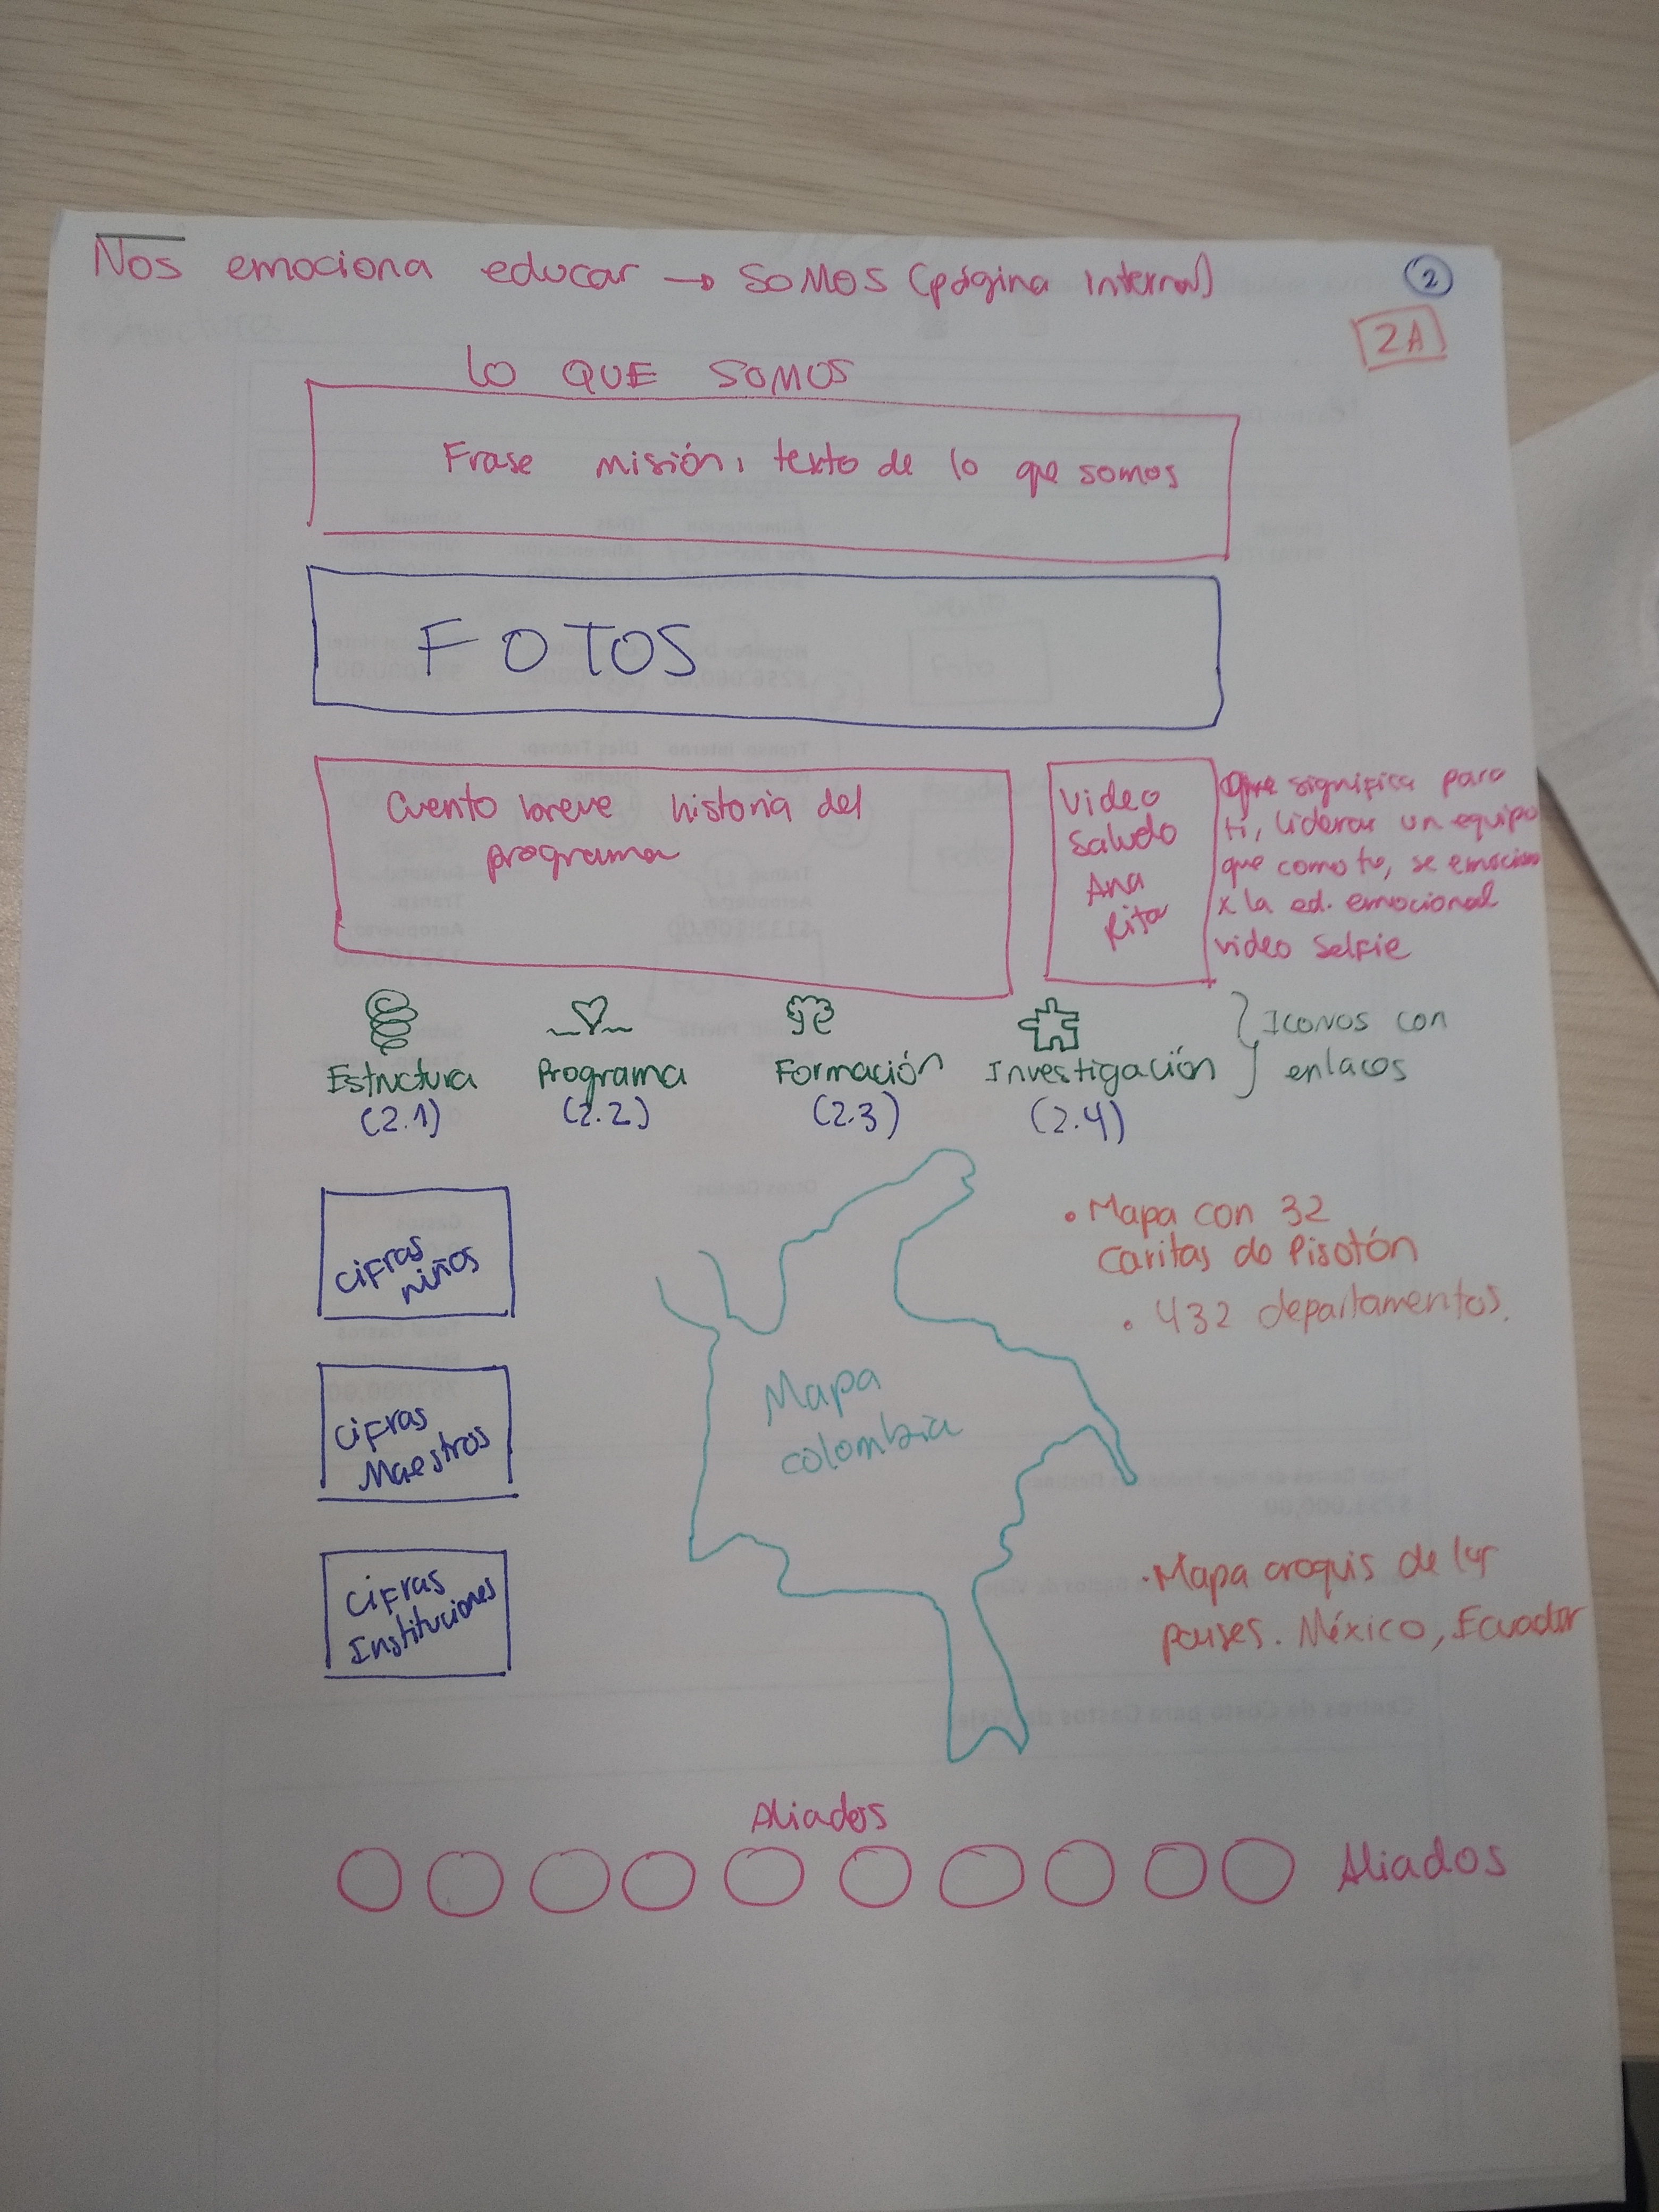 Nos emociona educar → SOMOS (página interna)
2
2A
LO QUE SOMOS
Frase misión, texto de lo que somos
FOTOS
Cuento breve historia del
programa
Video
Saludo
Ana
Rita
Que significa para
ti, liderar un equipo
que como tu, se emociona
x la ed. emocional
video selfie
Estructura
(2.1)
Programa
(2.2)
Formación
(2.3)
Investigación
(2.4)
Iconos con
enlaces
cifras
niños
cifras
Maestros
cifras
Instituciones
Mapa
colombia
• Mapa con 32
caritas de Pisotón
• 432 departamentos.
• Mapa croquis de las
paises. México, Ecuador
Aliados
Aliados